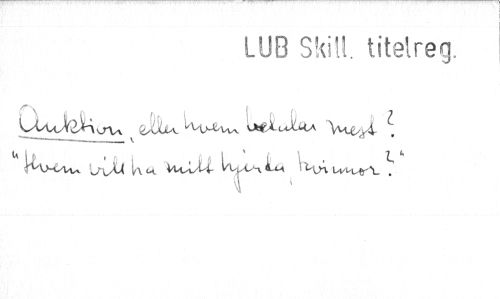 LUB Skill. titelreg.
Auktion, eller hvem betalar mest?
"Hvem vill ha mitt hjerta, kvinnor?"